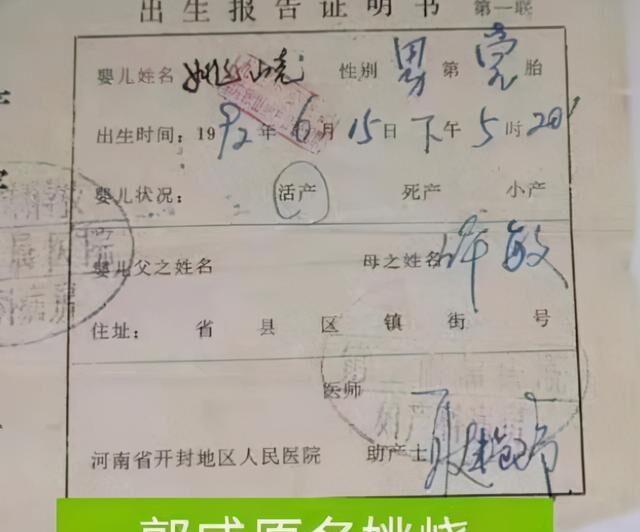 出生报告证明书 第一联
婴儿姓名 姚 性别 男 第 壹 胎
出生时间:1992年6月15日下午5时20'
婴儿状况: 活产 死产 小产
婴儿父之姓名 母之姓名 许敏
住址: 省 县 区 镇 街 号
医师
河南省开封地区人民医院 助产士
郭威原名姚